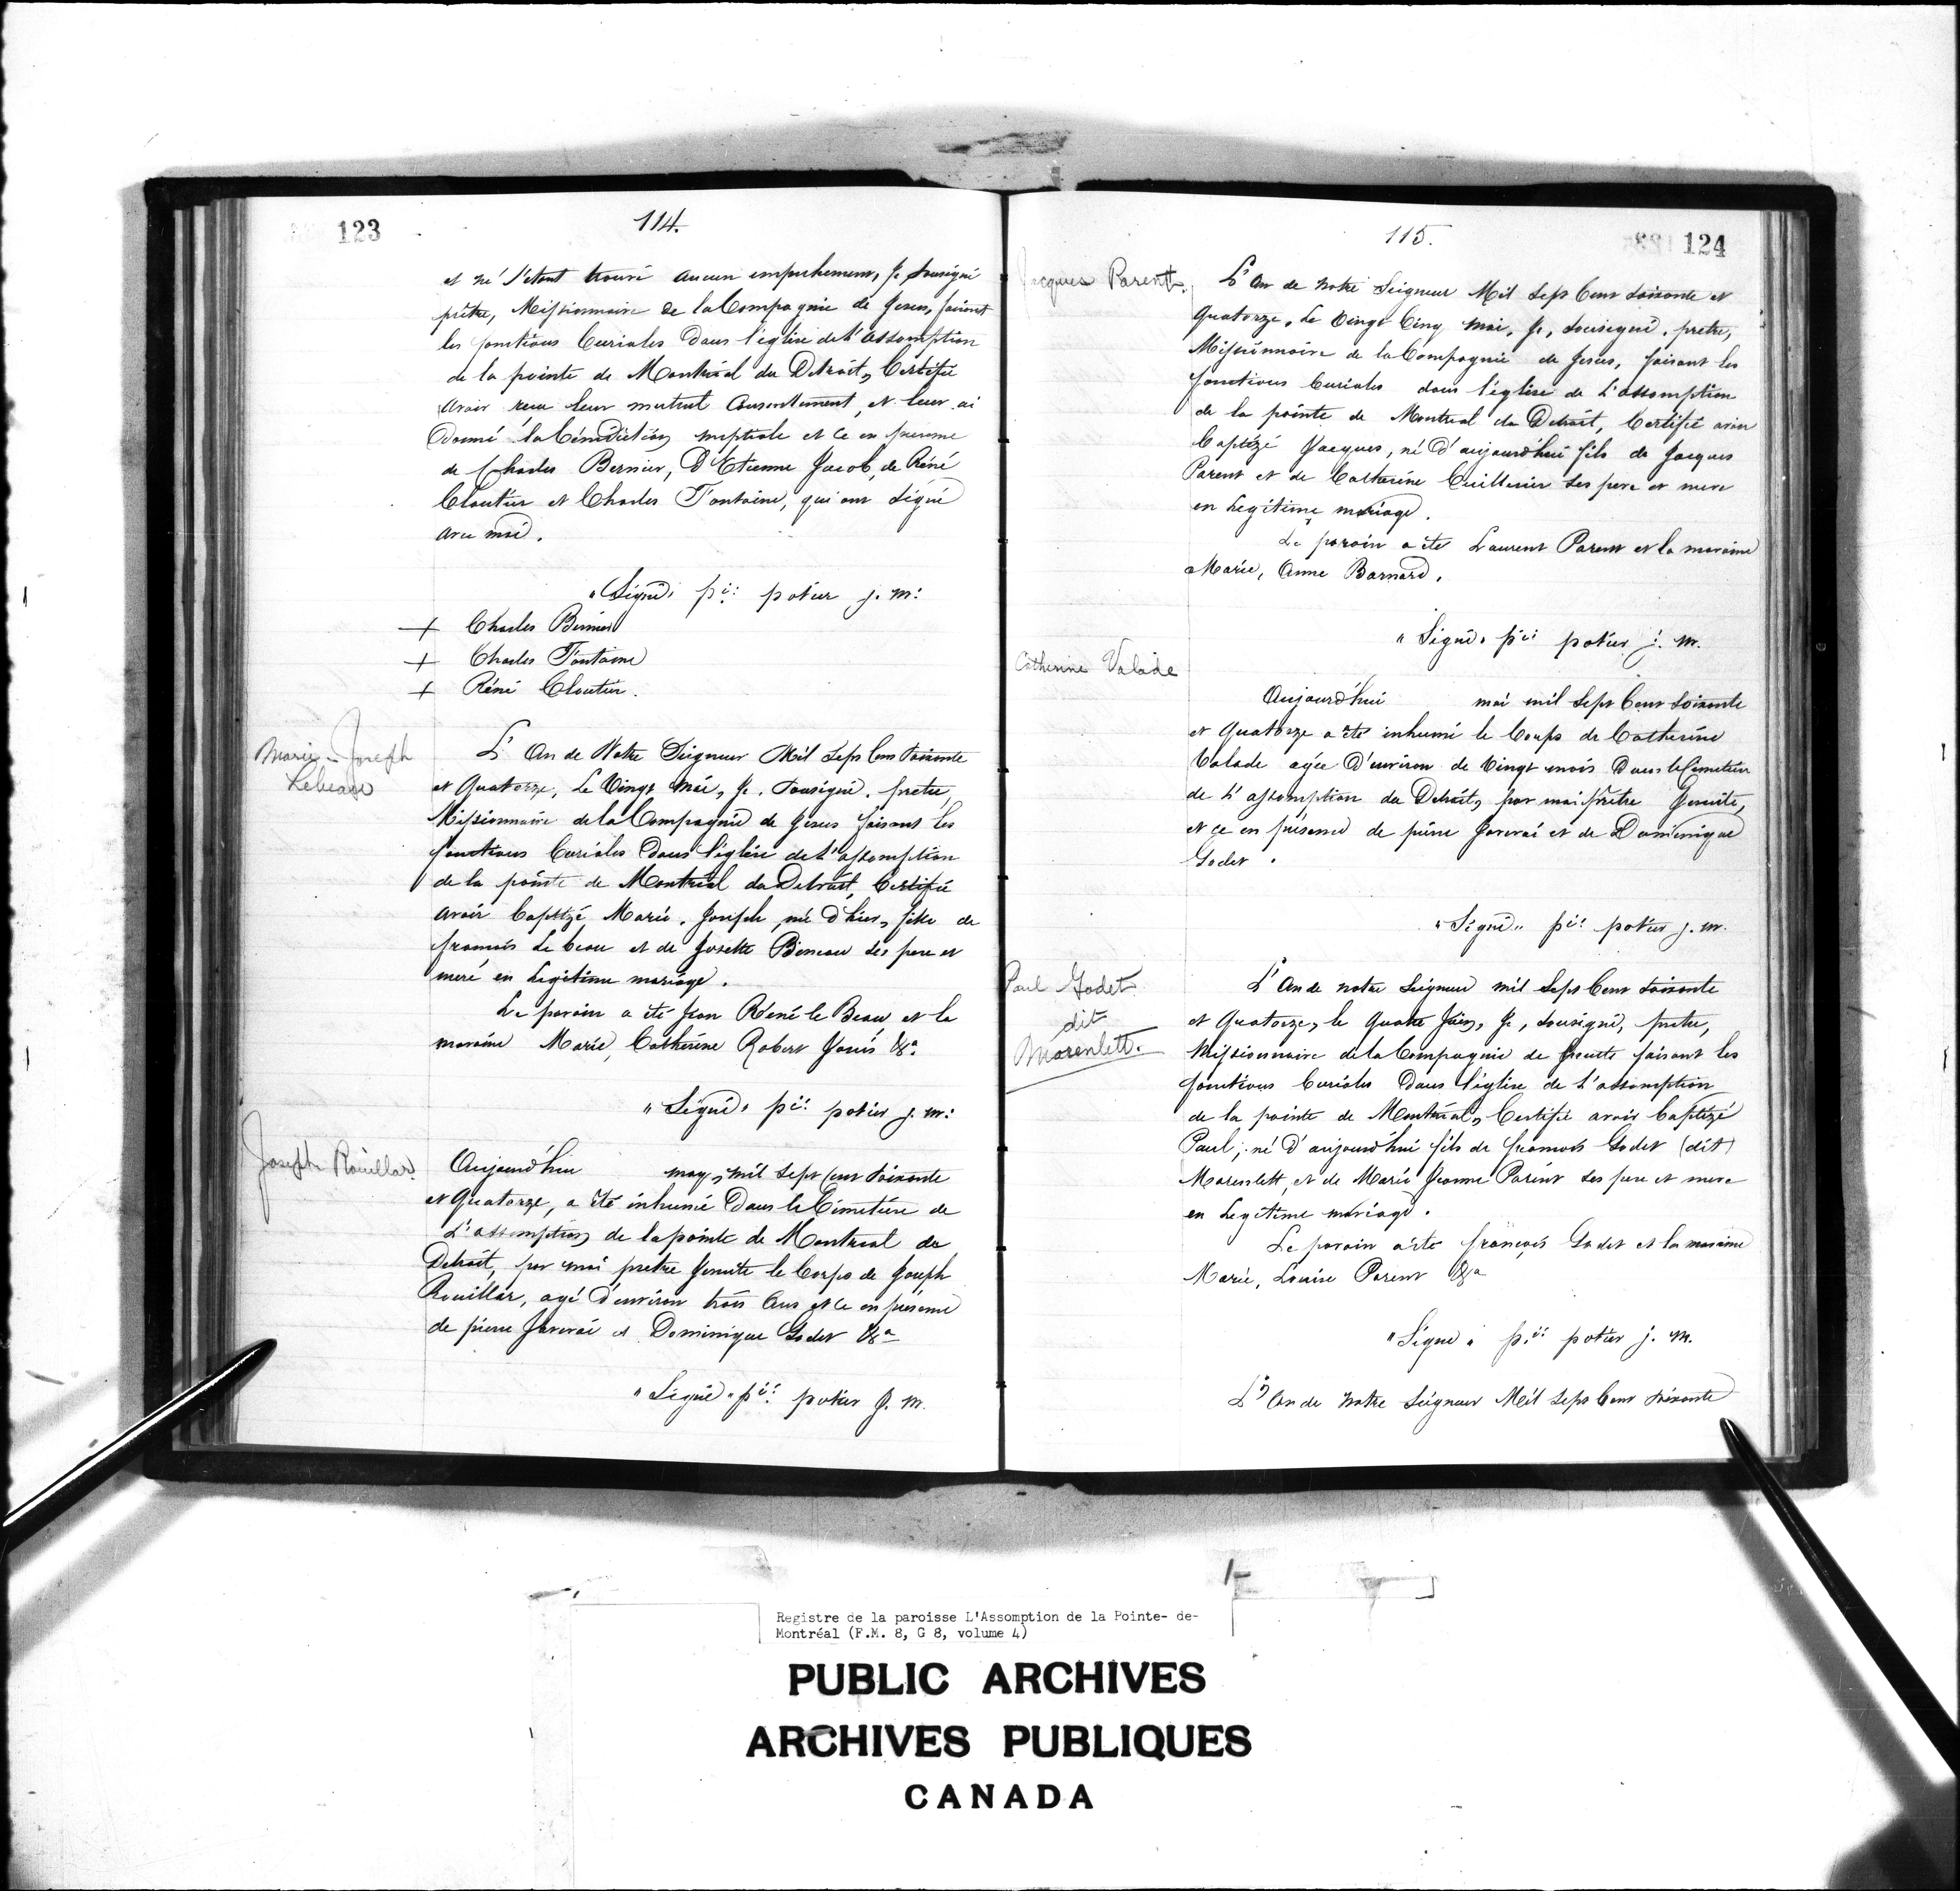 123
114.
et ne s'étant trouvé aucun empechement, Je sousigné
prêtre, Missionnaire de la Compagnie de Jesus, faisant
les fonctions Curiales Dans l'église de L'assomption
de la pointe de Montréal du Détroit, Certifie
avoir reçu leur mutuel Consentement, et leur ai
Donné la bénédiction nuptiale et Ce en présence
de Charles Bernier, D'Etienne Jacob, de Réné
Cloutier et Charles Fontaine, qui ont signé
avec moi.
"Signé" pi: potier j. m:
+ Charles Bernier
+ Charles Fontaine
+ Réné Cloutier.
Marie-Joseph
Lebeau
L'An de Notre Seigneur Mil Sept Cent soixante
et Quatorze, Le Vingt Mai, Je, sousigné, pretre,
Missionnaire de la Compagnie de Jesus faisant les
fonctions Curiales Dans l'église de L'assomption
de la pointe de Montréal du Detroit, Certifie
avoir baptizé Marie, Joseph, né d'hier, fille de
francois Le beau et de Josette Bineau ses pere et
mere en Legitime mariage.
Le parain a été Jean Réné le Beau et la
maraine Marie, Catherine Robert Janis &a
"Signé" pi: potier j. m:
Joseph Rouillar.
Aujourd'hui may, mil sept cent soixante
et Quatorze, a été inhumé Dans le Cimetiere de
L'assomption de la pointe de Montreal du
Detroit, par moi pretre Jesuite le Corps de Joseph
Rouillar, agé d'environ trois ans et Ce en présence
de pierre Javerai et Dominique Godet &a
"Signé" pi: potier J. m.
124
115.
Jacques Parent.
L'An de Notre Seigneur Mil Sept Cent soixante et
Quatorze, Le Vingt Cinq Mai, Je, sousigné, pretre,
Missionnaire de la Compagnie de Jesus, faisant les
fonctions Curiales dans l'église de L'assomption
de la pointe de Montreal du Detroit, Certifie avoir
baptizé Jacques, né D'aujourd'hui fils de Jacques
Parent et de Catherine Cuillerier ses pere et mere
en Legitime mariage.
Le parain a été Laurent Parent et la maraine
Marie, Anne Barnard.
"Signé" pi: potier j. m.
Catherine Valade
Aujourd'hui mai mil sept Cent soixante
et Quatorze a été inhumé le Corps de Catherine
Valade agée D'environ de Vingt mois Dans le Cimetiere
de L'assomption du Detroit, par moi prêtre Jesuite,
et Ce en présence de pierre Javerai et de Dominique
Godet.
"Signé" pi: potier j. m.
Paul Godet
dit
Marenlett.
L'An de notre Seigneur mil sept Cent soixante
et Quatorze, le Quatre Juin, Je, sousigné, pretre,
Missionnaire de la Compagnie de Jesuite faisant les
fonctions Curiales Dans l'église de L'assomption
de la pointe de Montréal, Certifie avoir baptizé
Paul; né D'aujourd'hui fils de francois Godet (dit)
Marenlett, et de Marie Jeanne Parent ses pere et mere
en Legitime mariage.
Le parain a été françois Godet et la maraine
Marie, Louise Parent &a
"Signé" pi: potier j. m.
L'An de Notre Seigneur Mil sept Cent soixante
Registre de la paroisse L'Assomption de la Pointe- de-
Montréal (F.M. 8, G 8, volume 4)
PUBLIC ARCHIVES
ARCHIVES PUBLIQUES
CANADA